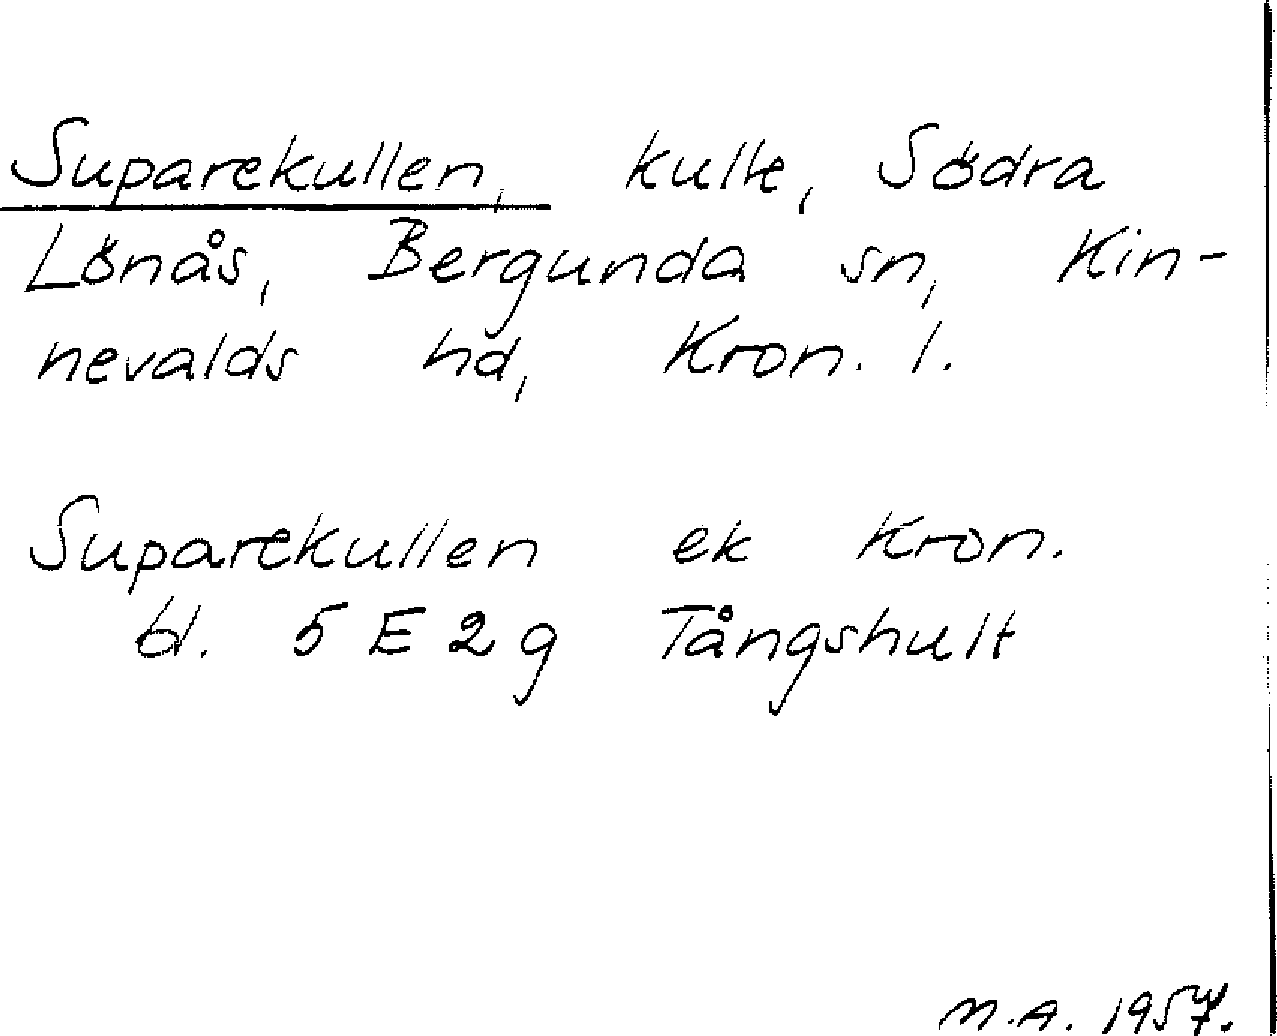 Suparekullen, kulle, Södra
Lönås, Bergunda sn, Kin-
nevalds hd, Kron. l.
Suparekullen ek Kron.
bl. 5 E 2 g Tångshult
M.A. 1957.